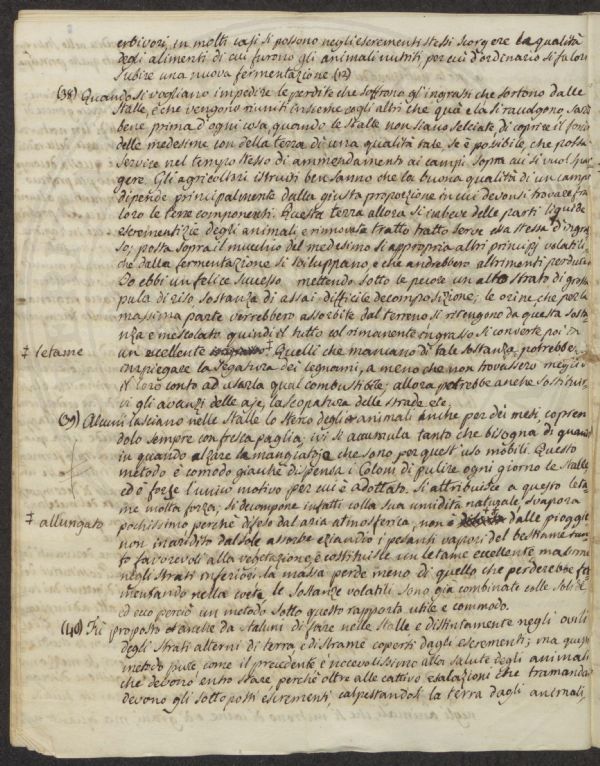 erbivori, in molti casi si possono negli escrementi stessi scorgere la qualità
degli alimenti di cui furono gli animali nutriti per cui d'ordinario si falor
subire una nuova fermentazione (12)
(38) Quando si vogliano impedire le perdite che soffrono gl'ingrassi che sortono dalle
stalle, e che vengono riuniti insieme cogli altri che quà e la si raccolgono, sarà
bene prima d'ogni cosa, quando le stalle non siano selciate di coprire il fondo
delle medesime con della terra di una qualità tale, se è possibile, che possa
servire nel tempo stesso di ammendamenti ai campi sopra cui si vuol span
gere. Gli agricoltori istruiti ben sanno che la buona qualità di un campo
dipende principalmente dalla giusta proporzione in cui devonsi trovare fra
loro le terre componenti. Questa terra allora si imbeve delle parti liquide
escrementizie degli animali e rinnovata tratto tratto serve essa stessa d'ingras
so; posta sopra il mucchio del medesimo si appropria altri principj volatili
che dalla fermentazione si sviluppano e che andrebbero altrimenti perduti.
Io ebbi un felice successo mettendo sotto le pecore un alto strato di grossa
pula di riso sostanza di assai difficile decomposizione; le orine che per la
massima parte verrebbero assorbite dal terreno si ritengono da questa sosta
nza e mescolato quindi il tutto col rimanente ingrasso si converte poi in
‡ letame
un eccellente ‡. Quelli che mancano di tale sostanza potrebbero
impiegare la segatura dei legnami, a meno che non trovassero meglio
il loro conto ad usarla qual combustibile; allora potrebbe anche sostituir
vi gli avanzi delle aje, la scopatura delle strade etc.
(39) Alcuni lasciano nelle stalle lo sterco degli animali anche per dei mesi, copren
dolo sempre con fresca paglia; ivi si accumula tanto che bisogna di quando
in quando alzare la mangiatoje che sono per quest'uso mobili. Questo
metodo è comodo giacchè dispensa i Coloni di pulire ogni giorno le stalle
ed è forse l'unico motivo per cui è adottato. Si attribuisce a questo leta
me molta forza; si decompone infatti colla sua umidità naturale, svapora
‡ allungato
pochissimo perchè difeso dal aria atmosferica, non è ‡ dalle pioggie
non inaridito dal sole assorbe eziandio i pesanti vapori del bestiame
to favorevoli alla vegetazione, e costituisce un letame eccellente massime
negli strati inferiori la massa perde meno di quello che perderebbe fer
mentando nella corte le sostanze volatili sono già combinati colle solide
ed ecco perciò un metodo sotto questo rapporto utile e commodo.
(40) Fù proposto anche da taluni di fare nelle stalle e distintamente negli ovili
degli strati alterni di terra, e di strame coperti dagli escrementi; ma questo
metodo pure come il precedente è nocevolissimo alla salute degli animali
che devono entro stare perchè oltre alle cattive esalazioni che tramandar
devono gli sottoposti escrementi, calpestandosi la terra dagli animali,